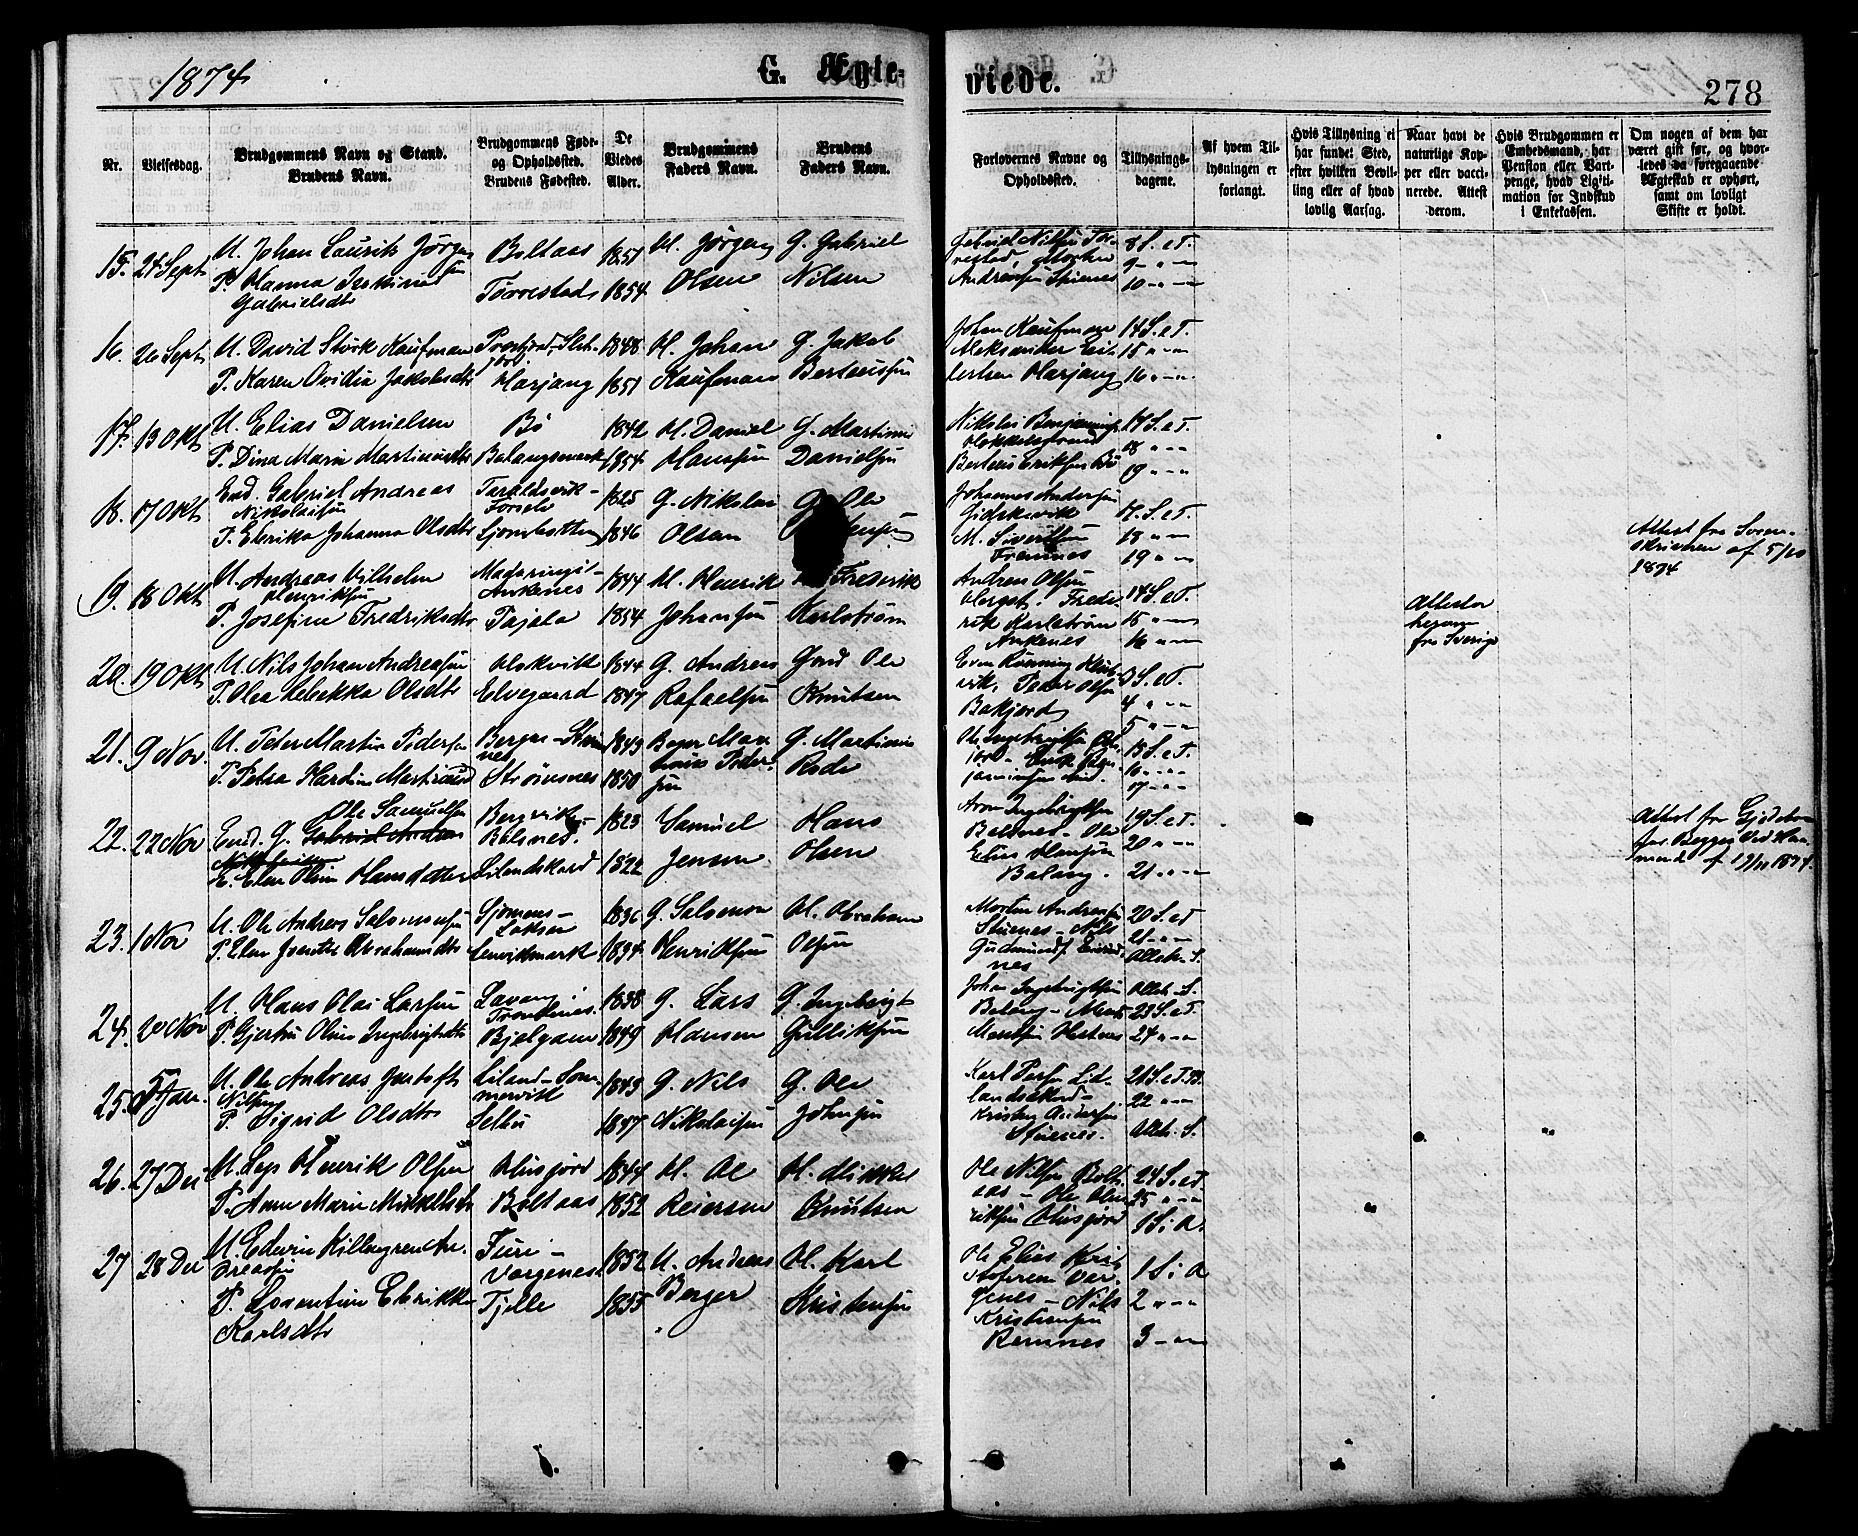 1874
G. Ægte-
viede.
278
Nr.
Vielsesdag.
Brudgommens Navn og Stand.
Brudens Navn.
Brudgommens Føde-
og Opholdssted.
Brudens Fødested.
De
Viedes
Alder.
Brudgommens
Faders Navn.
Brudens
Faders Navn.
Forlovernes Navne og
Opholdssted.
Tillysnings-
dagene.
Af hvem Til-
lysningen er
forlangt.
Hvis Tillysning ei
har fundet Sted,
efter hvilken Bevil-
ling eller af hvad
lovlig Aarsag.
Naar havt de
naturlige Kop-
per eller vacci-
nerede. Attest
derom.
Hvis Brudgommen er
Embedsmand, har
Pension eller Vart-
penge, hvad Ligiti-
mation for Indskud
i Enkekassen.
Om nogen af dem har
været gift før, og hvor-
ledes da foregaaende
Ægteskab er ophørt,
samt om lovligt
Skifte er holdt.
15. 24 Sept
U. Johan Laurits Jørgen
sen
P. Hanna
Gabrielsdtr
Boltaas
Tørrestads
1851
1854
H. Jørgen
Olsen
G. Gabriel
Nilsen
Gabriel Nilsen Tør-
restad, Morten
Andreassen Stienes
8 S. e T.
9 - " -
10 - " -
16. 26 Sept
U. David Stork Kaufman
P. Karen Ovidia Jakobsdtr
Harjang
1848
1851
H. Johan
Kaufman
G. Jakob
Berteussen
Johan Kaufman
Aleksander
Harjang
14 S. e T.
15 " - "
16 " - "
17. 13 Okt
U. Elias Danielsen
P. Dina Marie Martinusdtr
Bø
Balangsmark
1842
1854
H. Daniel
Hanssen
G. Martinus
Danielsen
Nikolai Benjaminsen
Berteus Eriksen Bø
17 S. e T.
18 " - "
19 " - "
18. 17 Okt
Enk. Gabriel Andreas
Nikolaisen
P. Elerika Johanna Olsdtr
Taraldsvik-
Forselv
Sjombotten
1825
1846
G. Nikolai
Olsen
G. Ole
Johannes Andersen
Gidskevik
M. Sivertsen
Framnes
17. S. e T.
18 " - "
19 " - "
Attest fra Soren-
skriveren af 5/10
1874
19. 18 Okt
U. Andreas Vilhelm
Henriksen
P. Josefine Fredriksdtr
Ankenes
Pajala
1844
1854
H. Henrik
Johansen
Frederik
Karlstrøm
Andreas Olsen
Herget. Frede-
rik Karlstrøm
Ankenes
14 S. e T.
15 " - "
16 " - "
Attester
herom
fra Sverige
20. 19 Okt
U. Nils Johan Andreassen
P. Olea Rebekka Olsdtr
Elvegaard
1844
1847
G. Andreas
Rafaelsen
Gmd Ole
Knutsen
Even Rønning
vik. Peder Olsen
Bakjord
3 S. e T.
4 " - "
5 " - "
21. 9 Nov.
U. Peter Martin Pedersen
P. Petra Hardine Martinusd
Strømsnes
1849
1850
Martinus Peder-
sen
G. Martinus
Rode
15 S. e T.
16 " - "
17 " - "
22. 22 Nov
Ole Samuelsen
Enkm. G. Gabriel Andreas
E. Elen Oline Hansdatter
Bergvik-
Balsnes.
Lilandskard
1823
1822
Samuel
Jensen
Hans
Olsen
Aron Ingebrigtsen
Balsnes - Ole
Elias Hansen
Balang.
19 S. e T.
20 " - "
21 " - "
Attest fra
for Begges Ved
1874.
23. 1 Nov
U. Ole Andreas Salomonsen
P. Elen Abrahamsdtr
Lenvikmark
1836
1834
G. Salomon
Henriksen
H. Abraham
Olsen
Morten Andreassen
Stienes - Nils
Gudmunds.
nes
20 S. e T
21 " - "
Alleh. S.
24. 20 Nov
U. Hans Olai Larsen
P. Gjertru Oline Ingebrigtsdtr
Lavang
Trondenes
Bjelgam
1838
1849
G. Lars
Hansen
G. Ingebrigt
Gulliksen
Johan Ingebrigtsen
Balang - Mons
Alleh. S.
23 S. e T.
24 " - "
25. 5 Jan.
U. Ole Andreas Justoft
Nilsen
P. Sigrid Olsdtr
Liland - Som-
mervik
Selbu
1843
1847
G. Nils
Nikolaisen
G. Ole
Johnsen
Karl Parsen Li-
landskard -
Kristen Andersen
Stienes.
21 S. e T.
22 " - "
Alleh. S.
26. 27 Dec
U. Lars Henrik Olsen
P. Anne Marie Mikkelsdtr
Husjord
Boltaas
1844
1852
H. Ole
Reiersen
H. Mikkel
Knutsen
Ole Nilsen Bolt-
aas - Ole
riksen Husjord
24 S. e T
25 " - "
1 S. i A.
27 28 Dec
U. Edvin Killengren An-
dreassen
P. Lorentine Elerikke
Karlsdtr
Furi -
Vargenes
Fjelle
1852
1855
U. Andreas
Berger
H. Karl
Kristensen
Ole Elias Kris-
tofersen Var-
genes - Nils
Kristiansen
Ramnes
1 S. i A
2 " - "
3 - " -